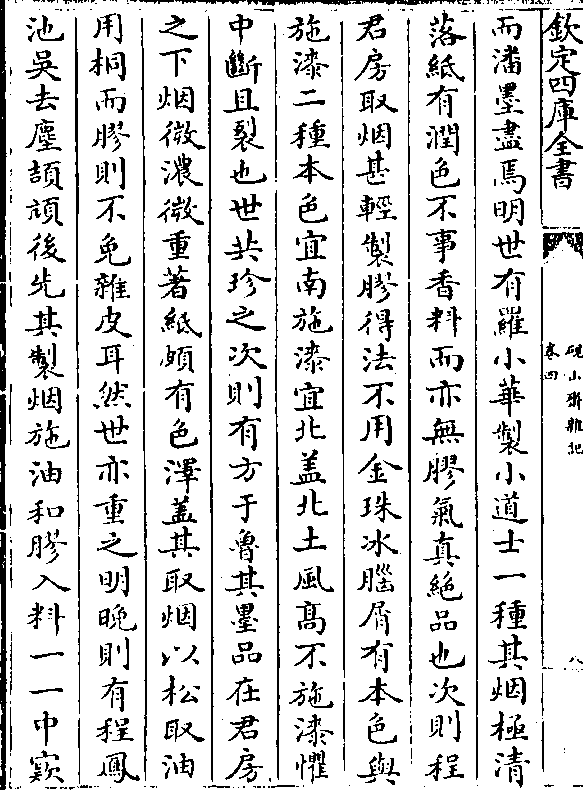 欽定四庫全書
硯山齋雜記
卷四
八
而潘墨盡焉明世有羅小華製小道士一種其烟極清
落紙有潤色不事香料而亦無膠氣真絕品也次則程
君房取烟甚輕製膠得法不用金珠冰腦屑有本色與
施漆二種本色宜南施漆宜北盖北土風髙不施漆懼
中斷且裂也世共珍之次則有方于魯其墨品在君房
之下烟微濃微重著紙頗有色澤盖其取烟以松取油
用桐而膠則不免雜皮耳然世亦重之明晚則有程鳳
池吳去塵頡頏後先其製烟施油和膠入料一一中窽